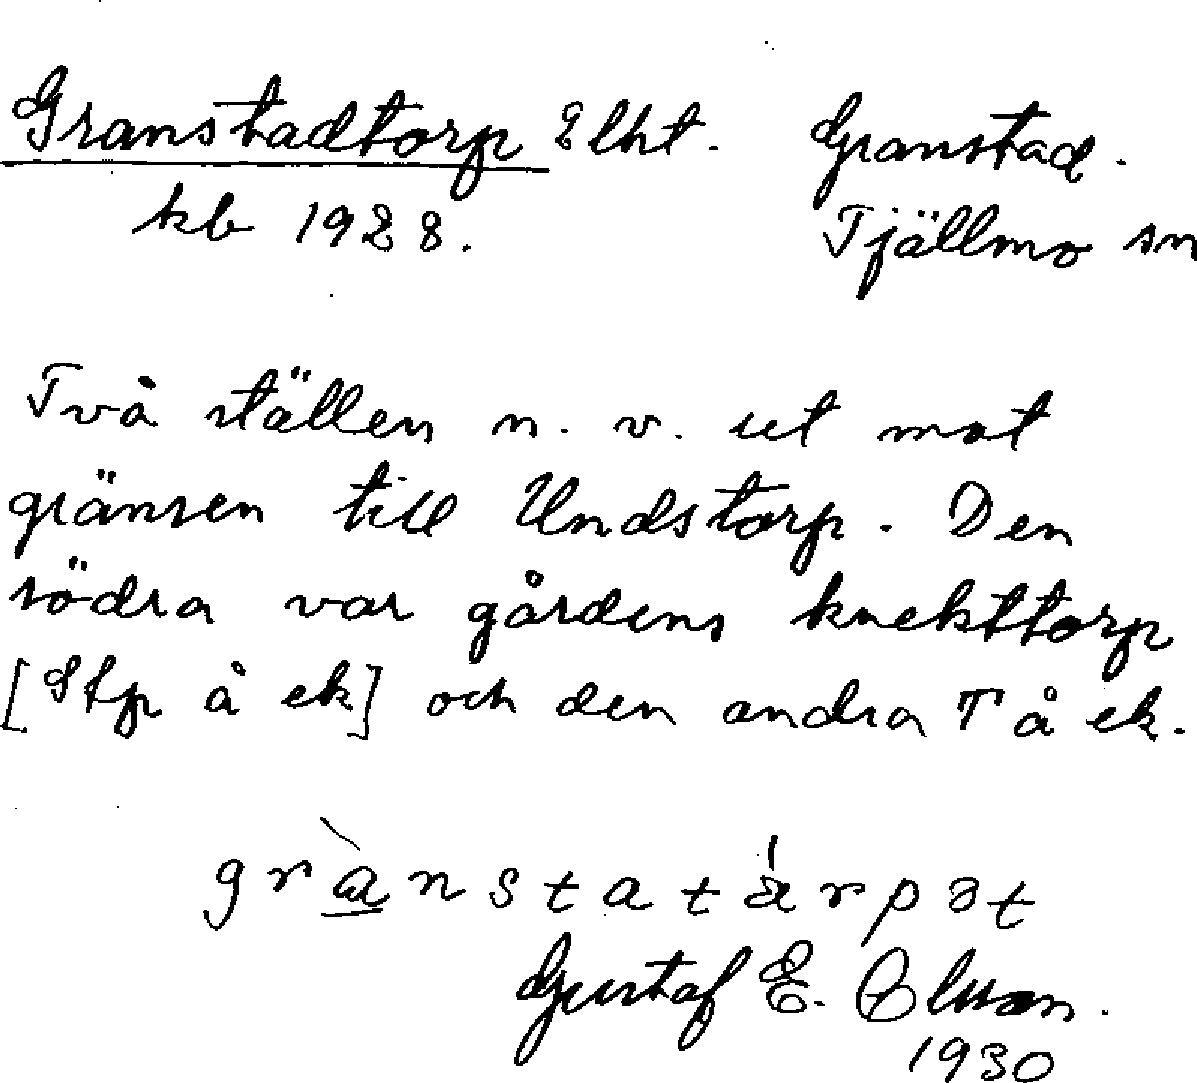 Granstadtorp Elht. Granstad.
kb 1928. Tjällmo sn
Två ställen n. v. ut mot
gränsen till Undstorp. Den
södra var gårdens knekttorp
[Stp å ek] och den andra T å ek.
Gustaf E.
1930